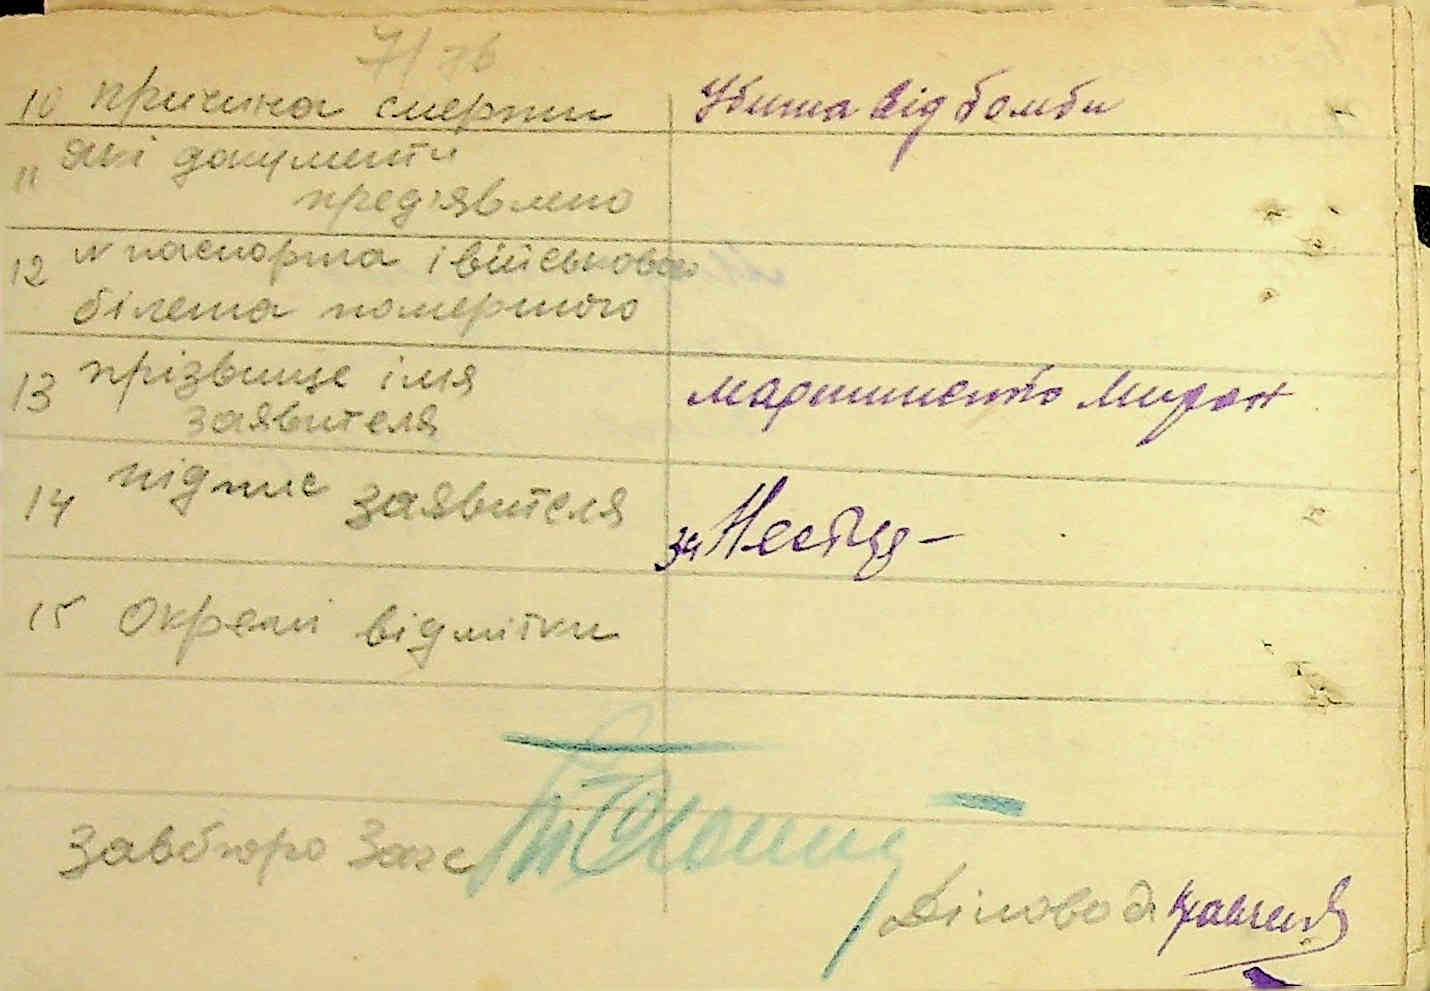 71 зв
10 причина смерти
Убита від бомби
11 які документи
пред'явлено
12 N паспорта і військового
білета помершого
13 прізвище імя
заявителя
Мартиненко Мирон
14 підпис заявителя
за
15 Окремі відмітки
Завбюро Загс
Діловод